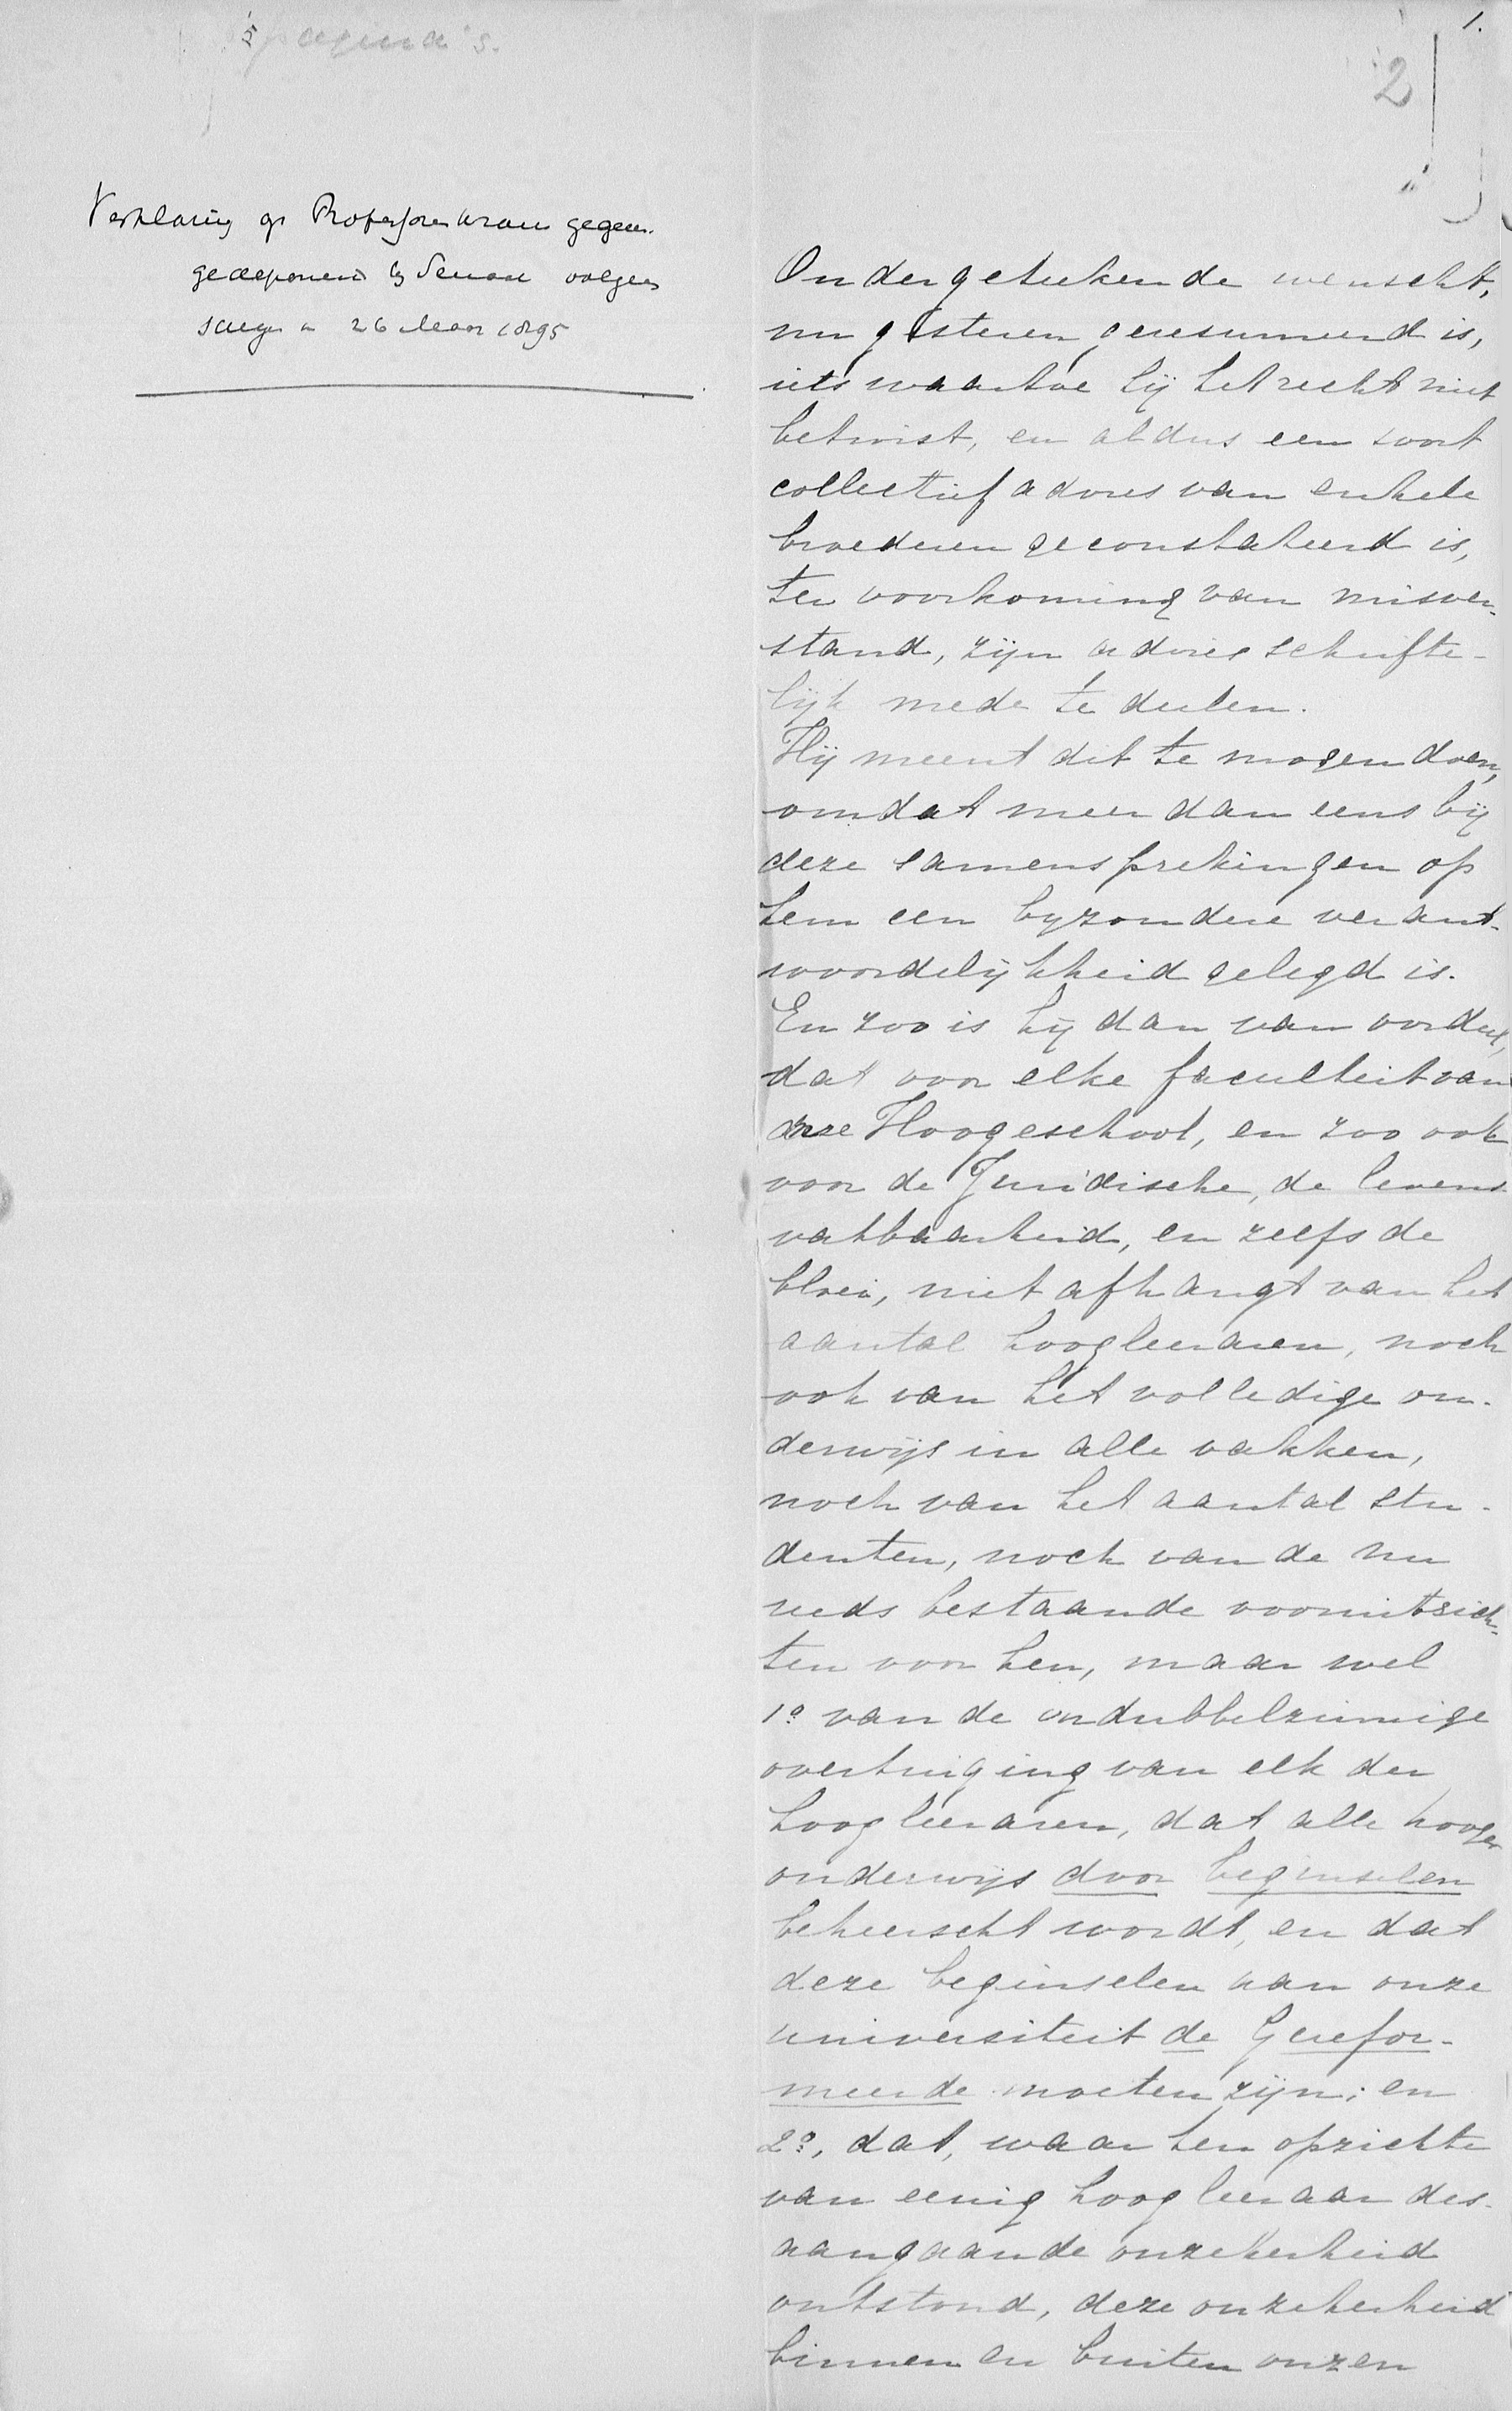 pagina's.
1.
2
Verklaring op Professorenkrans gegeven.
gedeponeerd bij Senaat volgens
26 Maart 1895
Ondergeteekende wenscht,
nu gisteren geresumeerd is,
iets waartoe hij het recht niet
betwist, en aldus een soort
collectief advies van enkele
broederen geconstateerd is,
ter voorkoming van misver-
stand, zijn advies schrifte-
lijk mede te deelen.
Hij meent dit te mogen doen,
omdat meer dan eens bij
deze samensprekingen op
hem een byzondere verant-
woordelijkheid gelegd is.
En zoo is hij dan van oordeel,
dat voor elke faculteit van
onze Hoogeschool, en zoo ook
voor de Juridische, de levens
vatbaarheid, en zelfs de
bloei, niet afhangt van het
aantal hoogleeraren, noch
ook van het volledige on-
derwijs in alle vakken,
noch van het aantal stu-
denten, noch van de nu
reeds bestaande vooruitzich-
ten voor hen, maar wel
1o van de ondubbelzinnige
overtuiging van elk der
hoogleeraren, dat alle hooger
onderwijs door beginselen
beheerscht wordt, en dat
deze beginselen aan onze
universiteit de Gerefor-
meerde moeten zijn; en
2o, dat, waar ten opzichte
van eenig hoogleeraar des-
aangaande onzekerheid
ontstond, deze onzekerheid
binnen en buiten onzen